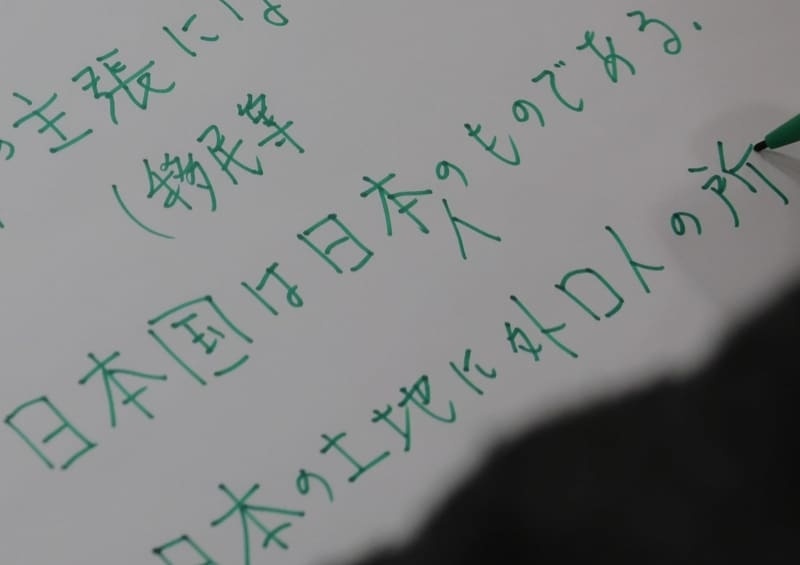 主張には
民等
日本国は日本人のものである.
日本の土地に外口人の所